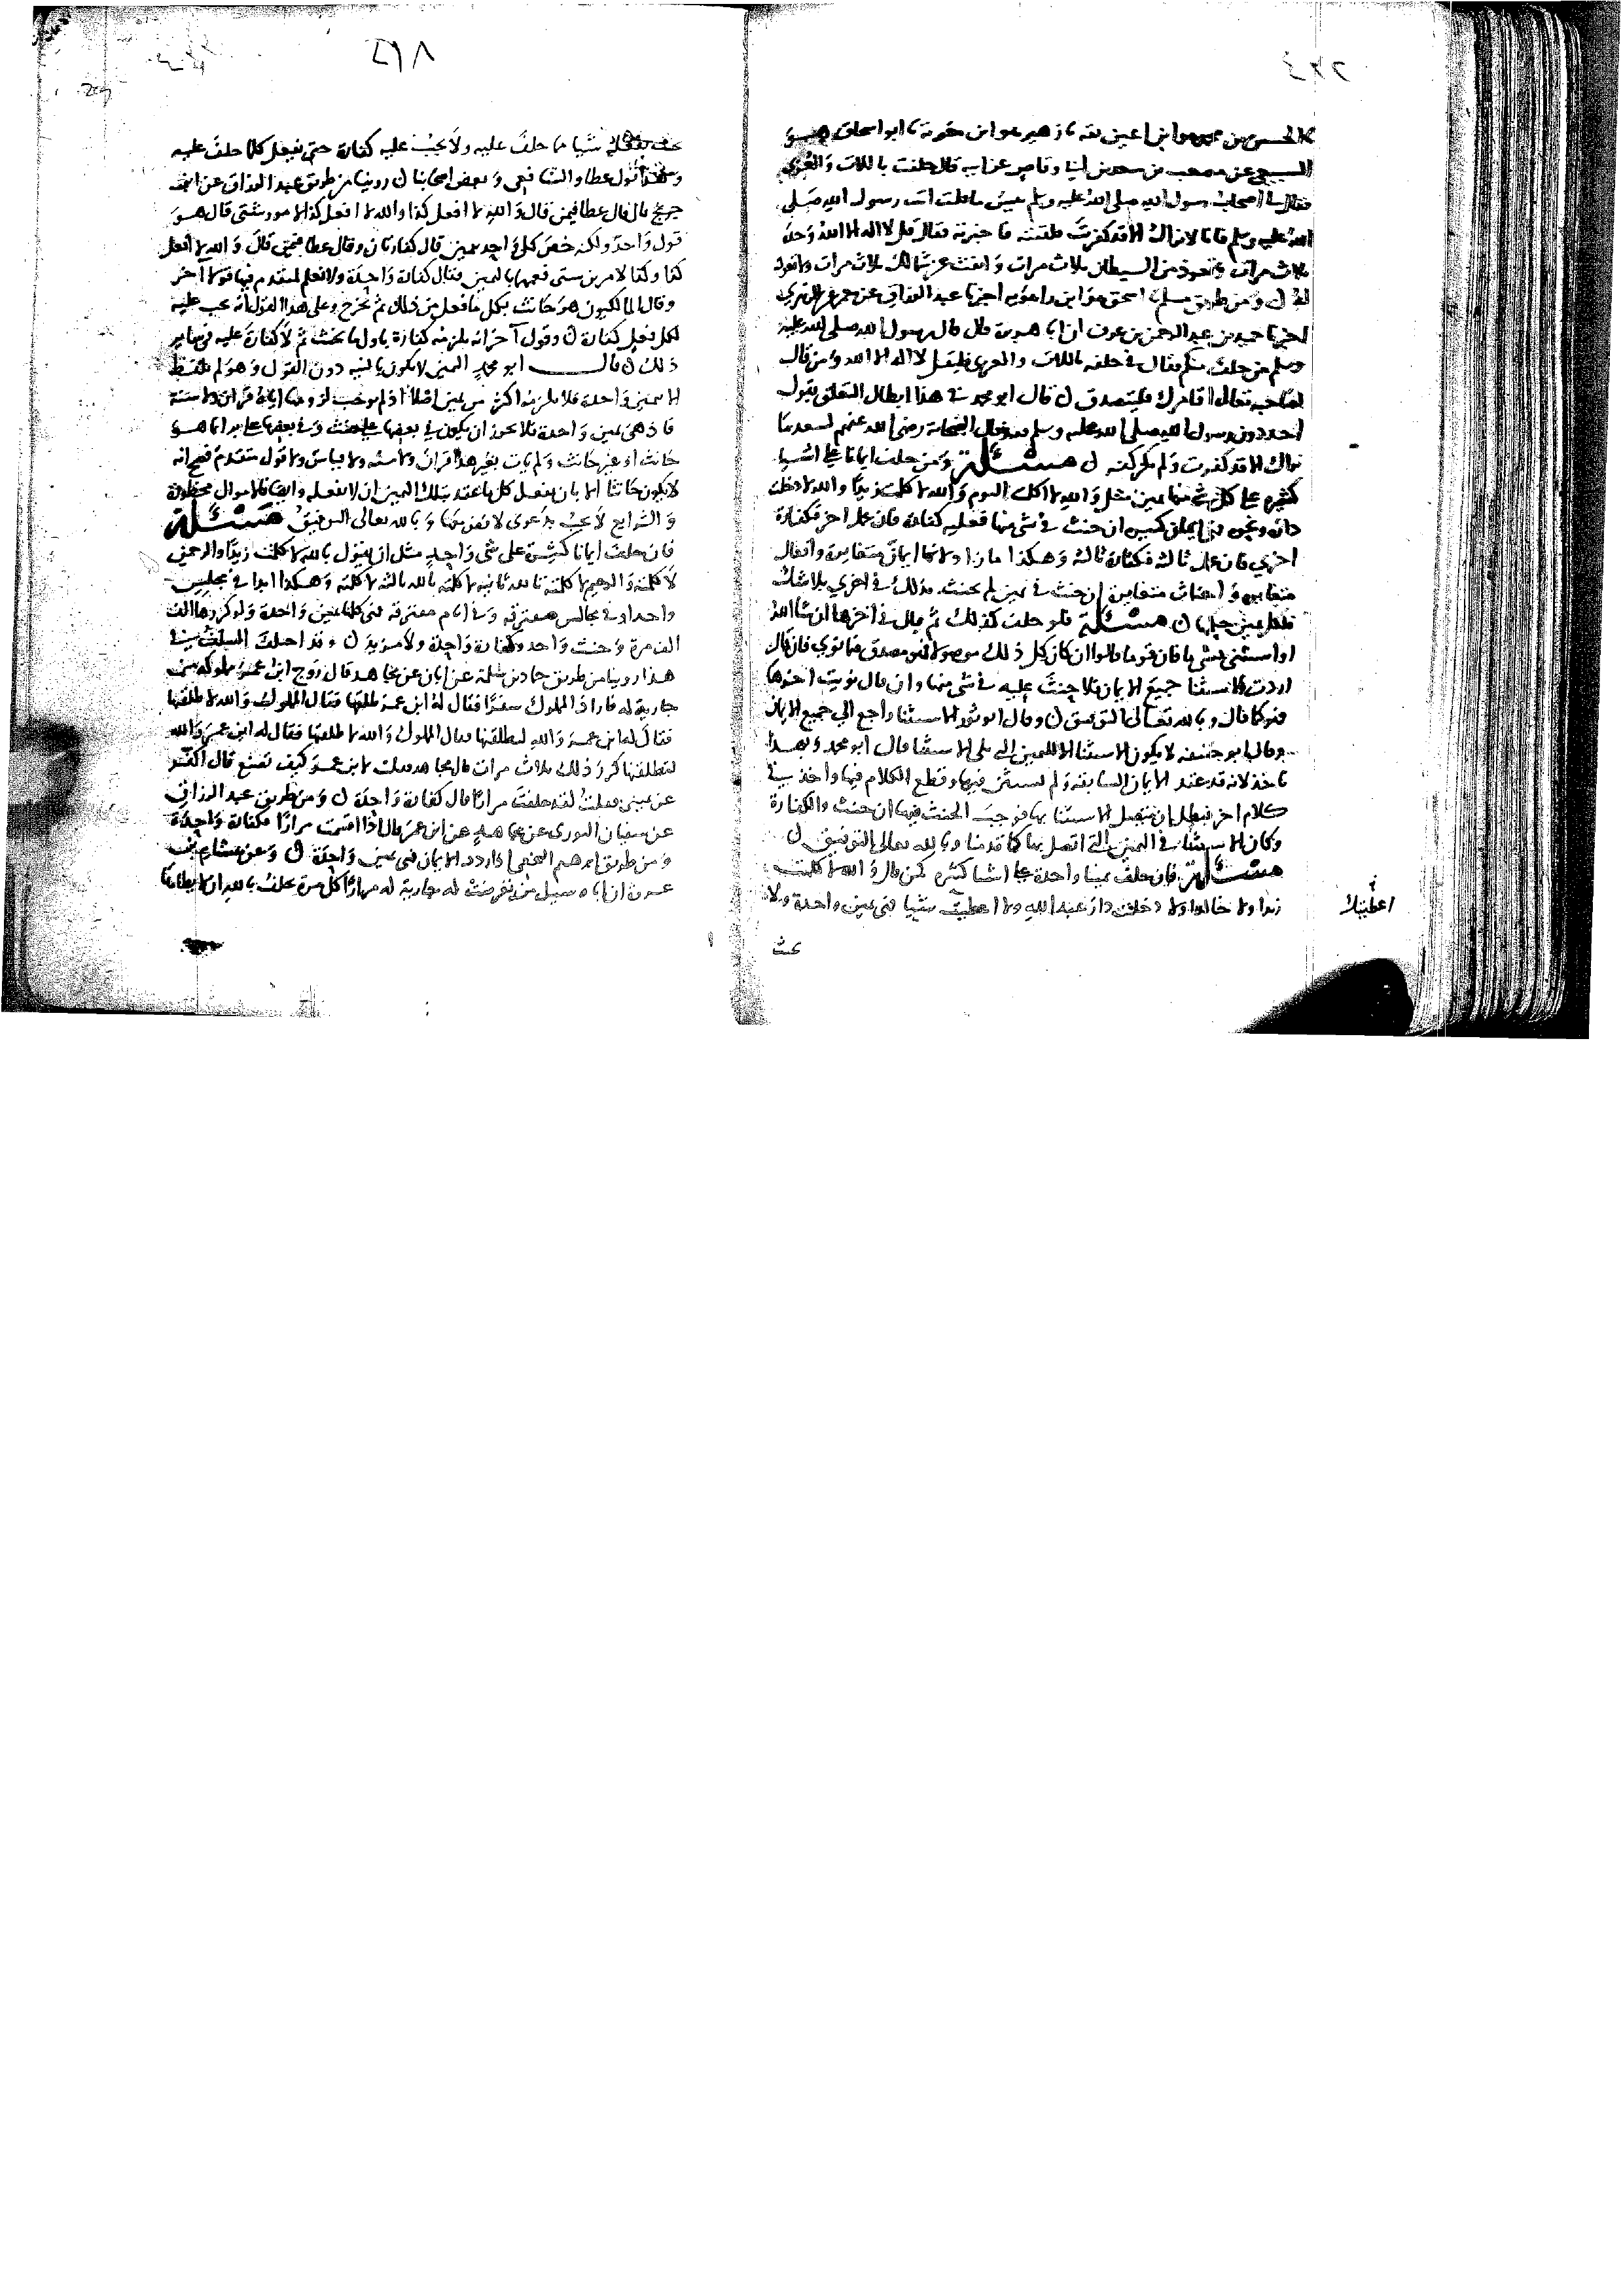 ٢٤٤
نا الحسن بن محمد هو ابن اعين ثقة نا زهير هو ابن معوية نا ابو اسحاق هو
السبيعي عن مصعب بن سعد بن ابي وقاص عن ابيه قال حلفت باللات والعزى
فقال لي اصحاب رسول الله صلى الله عليه وسلم بئس ما قلت ائت رسول الله صلى
الله عليه وسلم فانا لا نراك الا قد كفرت فلقيته فاخبرته فقال قل لا اله الا الله وحده
ثلاث مرات وتعوذ من الشيطان ثلاث مرات وانفث عن شمالك ثلاث مرات ولا تعد
له ن ومن طريق مسلم نا اسحق هو ابن راهويه اخبرنا عبد الرزاق عن معمر عن الزهري
اخبرنا حميد بن عبد الرحمن بن عوف ان ابا هريرة قال قال رسول الله صلى الله عليه
وسلم من حلف منكم فقال في حلفه باللات والعزى فليقل لا اله الا الله ومن قال
لصاحبه تعال اقامرك فليتصدق ن قال ابو محمد في هذا ابطال التعلق بقول
احد دون رسول الله صلى الله عليه وسلم فقد قال الصحابة رضي الله عنهم لسعد ما
نراك الا قد كفرت ولم يكن كفر ن مسئلة ومن حلف ايمانا على اشيا
كثيرة على كل شي منها يمين مثل والله لا اكلت اليوم ووالله لا كلمت زيدا والله لا دخلت
داره ونحو هذا فهي ايمان كثيرة ان حنث في شي منها فعليه كفارة فان عمل اخر فكفارة
اخرى فان عمل ثالثة فكفارة ثالثة وهكذا ما زاد لانها ايمان متغايرة وافعال
متغايرة واحناث متغايرة ان حنث في يمين لم يحنث بذلك في اخرى بلا شك
فلكل يمين حكمها ن مسئلة فلو حلف كذلك ثم قال في اخرها ان شا الله
او استثنى بشي ما فان قوما قالوا ان كان كل ذلك موصولا فهو مصدق فيما نوى فان قال
اردت بالاستثنا جميع الايمان فلا حنث عليه في شي منها وان قال نويت اخرها
فهو كما قال وبالله تعالى التوفيق ن وقال ابو ثور الاستثنا راجع الى جميع الايمان
وقال ابو حنيفة لا يكون الاستثنا الا لليمين التي تلي الاستثنا قال ابو محمد وبهذا
ناخذ لانه قد عقد الايمان السابقة ولم يستثن فيها وقطع الكلام فيها واخذ في
كلام اخر فبطل ان يتصل الاستثنا بها فوجب الحنث فيها ان حنث والكفارة
وكان الاستثنا في اليمين التي اتصل بها كما قدمنا وبالله تعالى التوفيق ن
مسئلة فان حلف يمينا واحدة على اشيا كثيرة كمن قال والله لا كلمت
زيدا ولا خالدا ولا دخلت دار عبد الله ولا اعطيت شيا فهي يمين واحدة ولا
اعطيتك
يحنث
٢١٨
يحنث بفعله شيا مما حلف عليه ولا يجب عليه كفارة حتى يفعل كلما حلف عليه
وهذا قول عطا والشافعي وبعض اصحابنا ن روينا من طريق عبد الرزاق عن ابن
جريج قال قال عطا فيمن قال والله لا افعل كذا والله لا افعل كذا لامور شتى قال هو
قول واحد ولكنه خص كل واحد بيمين قال كفارتان وقال عطا فيمن قال والله لا افعل
كذا وكذا لامرين شتى فعمهما باليمين فقال كفارة واحدة ولا نعلم لمتقدم فيها قولا اخر
وقال المالكيون هو حانث بكل ما فعل من ذلك ثم تخرج وعلى هذا القول انه يجب عليه
لكل فعل كفارة ن وقول آخر انه يلزمه كفارة باول ما يحنث ثم لا كفارة عليه في ساير
ذلك ن قال ابو محمد اليمين لا يكون بالنية دون القول وهو لم يلفظ
الا بيمين واحدة فلا يلزمه اكثر من يمين اصلا اذ لم يوجب لزومها اياه قران ولا سنة
فاذ هي يمين واحدة فلا يجوز ان يكون في بعضها على حنث وفي بعضها على بر انما هو
حانث او غير حانث ولم يات بغير هذا قران ولا سنة ولا قياس ولا قول متقدم فصح انه
لا يكون حانثا الا بان يفعل كل ما عقد بتلك اليمين ان لا يفعله وايضا فالاموال محظورة
والشرايع لا تجب بدعوى لا نص معها وبالله تعالى التوفيق مسئلة
فان حلف ايمانا كثيرة على شي واحد مثل ان يقول بالله لا كلمت زيدا والرحمن
لا كلمته والرحيم لا كلمته بالله ثانية لا كلمته بالله ثالثة لا كلمته وهكذا ابدا في مجلس
واحد او في مجالس متفرقة وفي ايام متفرقة فهي كلها يمين واحدة ولو كررها الف
الف مرة وحنث واحد وكفارة واحدة ولا مزيد ن وقد اختلف السلف في
هذا روينا من طريق حماد بن سلمة عن ابان عن مجاهد قال زوج ابن عمر مملوكه من
جارية له فاراد المملوك سفرا فقال له ابن عمر طلقها فقال المملوك والله لا طلقتها
فقال له ابن عمر والله لتطلقنها فقال المملوك والله لا طلقتها فقال له ابن عمر والله
لتطلقنها كرر ذلك ثلاث مرات قال مجاهد فقلت لابن عمر كيف تصنع قال اكفر
عن يميني فقلت له قد حلفت مرارا قال كفارة واحدة ن ومن طريق عبد الرزاق
عن سفيان الثوري عن مجاهد عن ابن عمر قال اذا اقسمت مرارا فكفارة واحدة
ومن طريق ابرهيم النخعي اذا ردد الايمان فهي يمين واحدة ن وعن هشام بن
عروة ان اباه سيل عمن تعرضت له جارية له مرارا كل مرة يحلف بالله ان لا يطاها